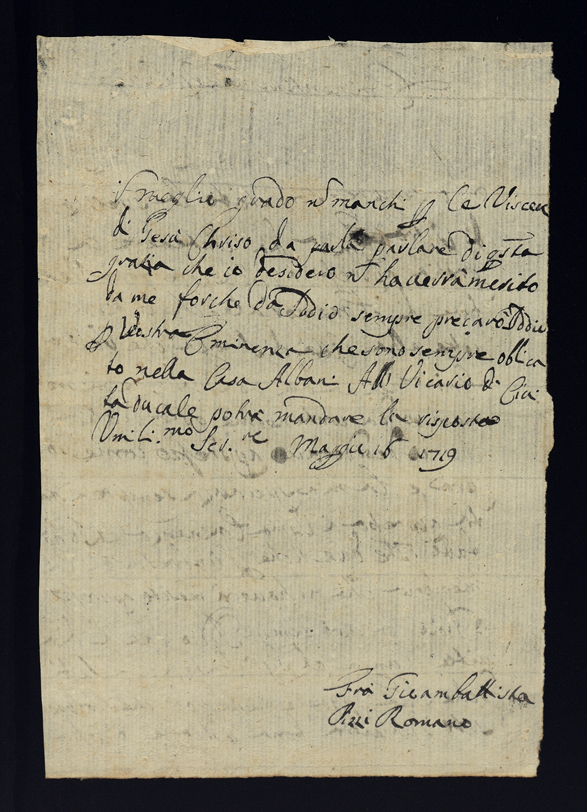 meglio grado n manchi p le Viscere
di Gesù Chriso da farla parlare di gsta
gratia che io desidero n haverà merito
da me forche da Dodio sempre precarò Dodio
p Vostra Eminenza che sono sempre oblica
to nella Casa Albani All Vicario di Civi
ta ducale potra mandare la risposta
Umili.mo Ser.re Maggio 18 1719
Frà Gioambattista
Pizzi Romano